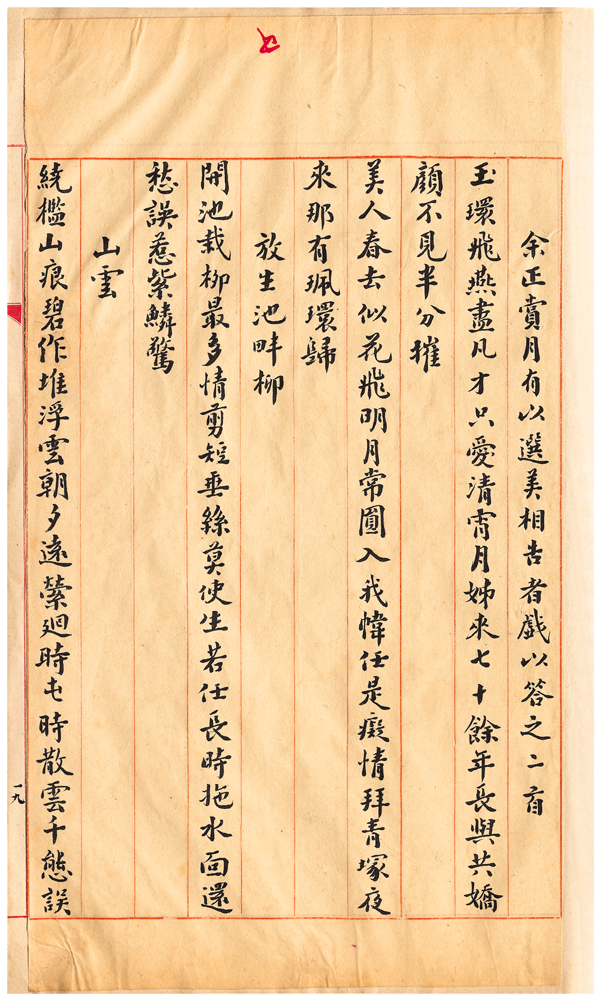 余正賞月有以選美相告者戲以答之二首
玉環飛燕盡凡才只愛清宵月姊來七十餘年長與共嬌
顏不見半分摧
美人春去似花飛明月常圓入我幃任是癡情拜青塚夜
來那有珮環歸
放生池畔柳
開池栽柳最多情剪短垂絲莫使生若任長時拖水面還
愁誤惹紫鱗驚
山雲
繞檻山痕碧作堆浮雲朝夕遠縈廻時屯時散雲千態誤
一九